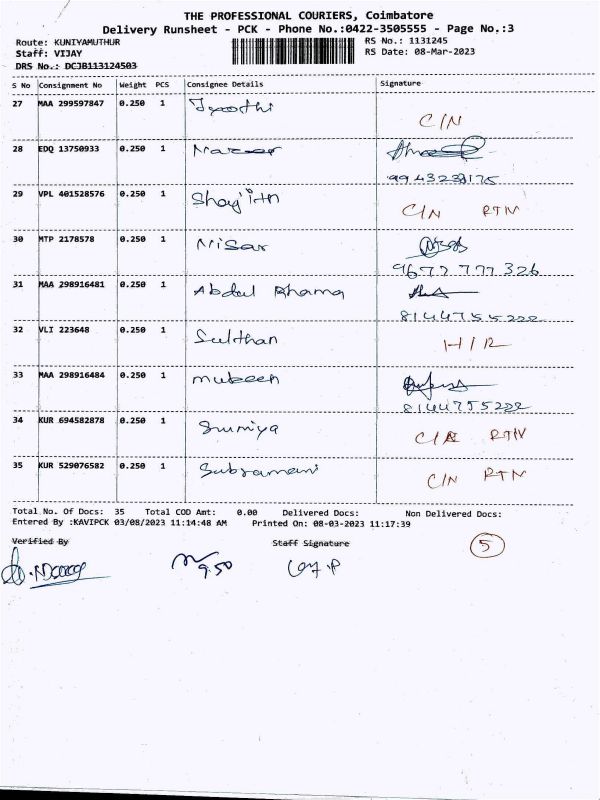 THE PROFESSIONAL COURIERS, Coimbatore
Delivery Runsheet - PCK - Phone No.:0422-3505555 - Page No.:3
Route: KUNIYAMUTHUR RS No.: 1131245
Staff: VIJAY RS Date: 08-Mar-2023
DRS No.: DCJB113124503
S No Consignment No Weight PCS Consignee Details Signature
27 MAA 299597847 0.250 1 Jyothi
C/N
28 EDQ 13750933 0.250 1 Nazeer
29 VPL 401528576 0.250 1
C/N RTN
30 MTP 2178578 0.250 1 Nisar
9677777326
31 MAA 298916481 0.250 1 Abdul Rhama
8144755222
32 VLI 223648 0.250 1 Sulthan
33 MAA 298916484 0.250 1 mubeen
8144755222
34 KUR 694582878 0.250 1 Sumiya
C/N RTN
35 KUR 529076582 0.250 1 Subramani
C/N RTN
Total No. Of Docs: 35 Total COD Amt: 0.00 Delivered Docs: Non Delivered Docs:
Entered By :KAVIPCK 03/08/2023 11:14:48 AM Printed On: 08-03-2023 11:17:39
Verified By Staff Signature
5
9.50